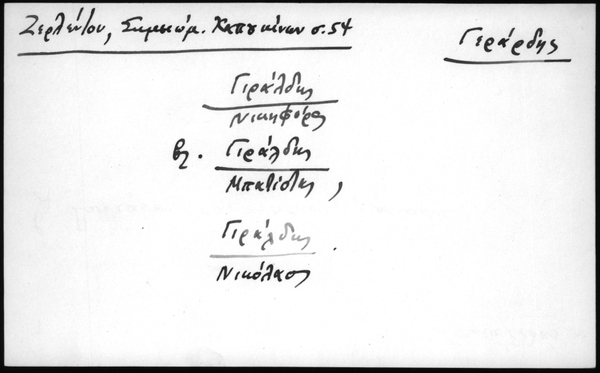 Ζερλέντου, Σημειώμ. Καπουκίνων σ. 54
Γεράρδης
Γιράλδης
Νικηφόρος
βλ. Γιράλδης
Μπατίστας,
Γιράλδης.
Νικόλαος